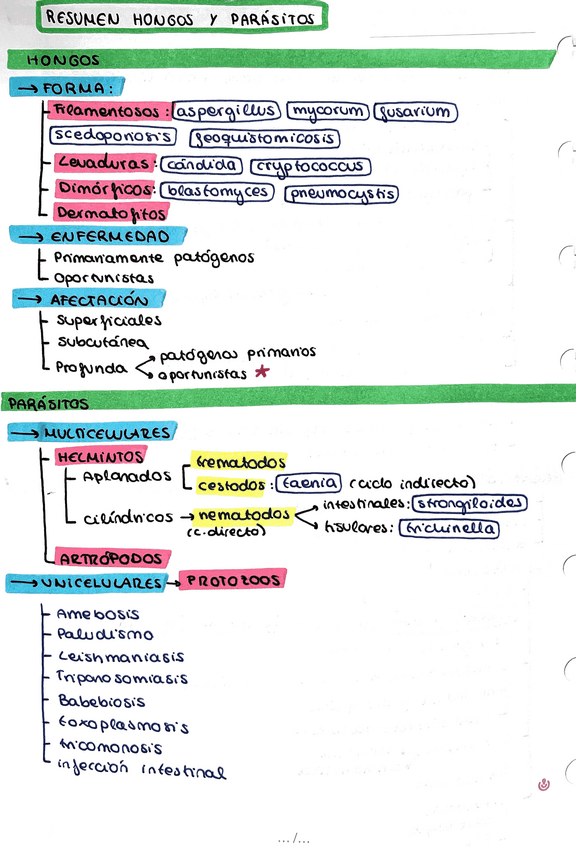 RESUMEN HONGOS Y PARÁSITOS
HONGOS
→ FORMA:
Filamentosos: aspergillus mycorum fusarium
scedoporiosis geoquistomicosis
Levaduras: cándida cryptococcus
Dimórficos: blastomyces pneumocystis
Dermatofitos
→ ENFERMEDAD
Primariamente patógenos
Oportunistas
→ AFECTACIÓN
Superficiales
Subcutánea
Profunda patógenos primarios
oportunistas ★
PARÁSITOS
→ MULTICELULARES
HELMINTOS
Aplanados trematodos
cestodos: taenia (ciclo indirecto)
cilíndricos → nematodos intestinales: strongiloides
(c.directo) tisulares: trichinella
ARTRÓPODOS
→ UNICELULARES → PROTOZOOS
Amebosis
Paludismo
Leishmaniasis
Triponosomiasis
Babebiosis
toxoplasmosis
tricomonosis
infección intestinal
.../...